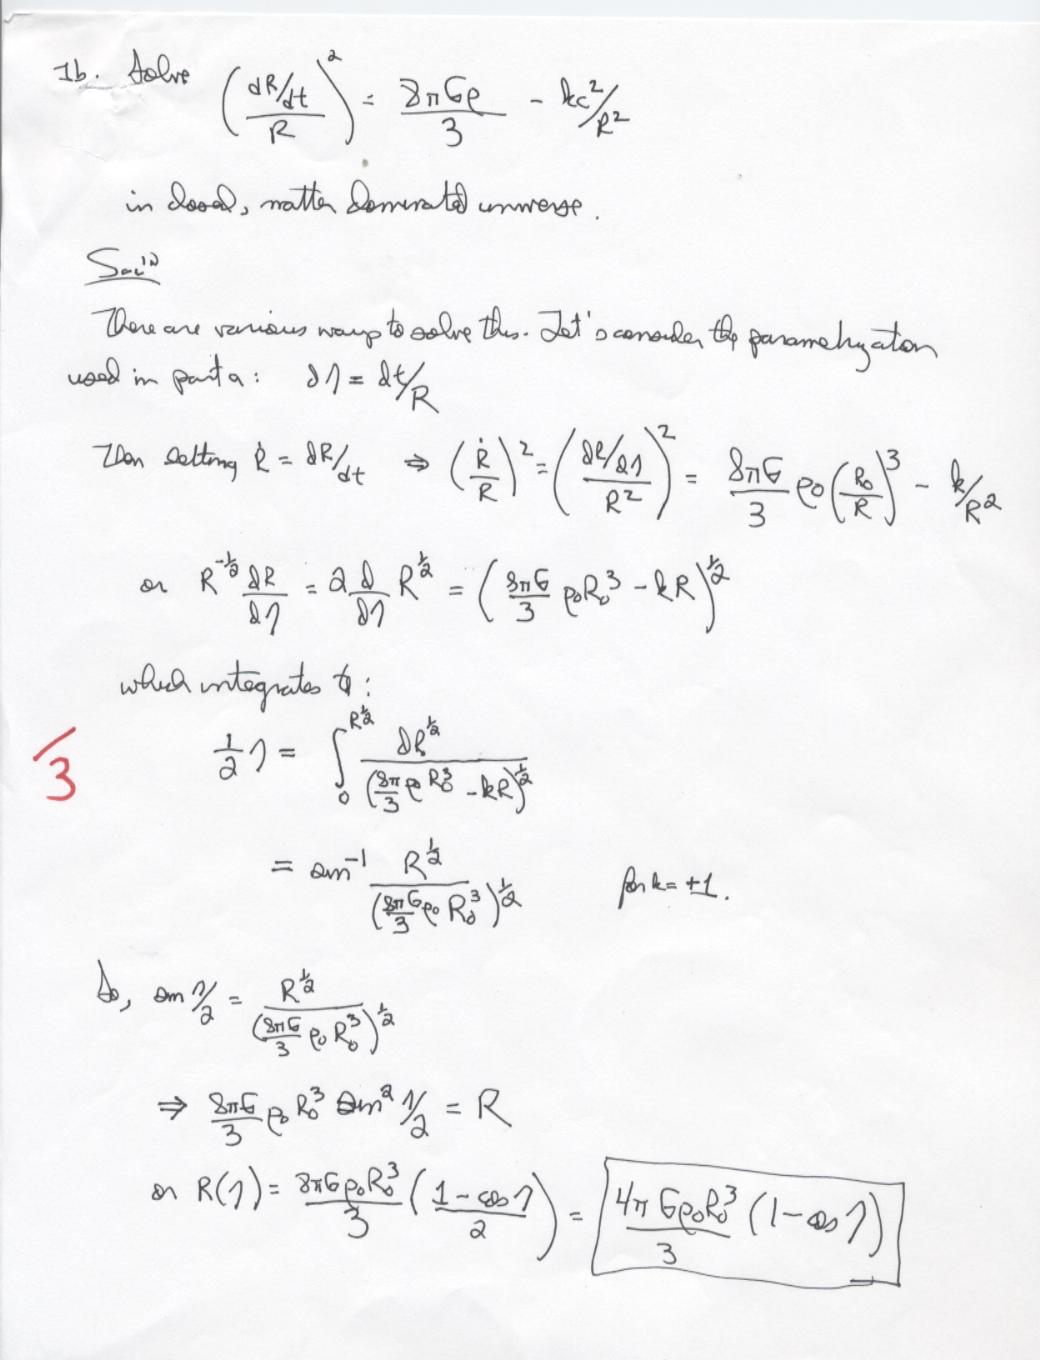 1b. Solve ((dR/dt)/R)^2 = 8πGρ/3 - kc^2/R^2
in closed, matter dominated universe.
Sol'n
There are various ways to solve this. Let's consider the parametrization
used in part a: dη = dt/R
Then setting Ṙ = dR/dt ⇒ (Ṙ/R)^2 = ((dR/dη)/R^2)^2 = 8πG/3 ρ0 (R0/R)^3 - k/R^2
or R^-1/2 dR/dη = 2 d/dη R^1/2 = (8πG/3 ρ0R0^3 - kR)^1/2
which integrates to:
/3
1/2 η = ∫_0^R^1/2 dR^1/2/(8π/3 ρ R0^3 - kR)^1/2
= sin^-1 R^1/2/(8πG/3 ρ0 R0^3)^1/2 for k = +1.
So, sin η/2 = R^1/2/(8πG/3 ρ0 R0^3)^1/2
⇒ 8πG/3 ρ0 R0^3 sin^2 η/2 = R
or R(η) = 8πGρ0R0^3/3 ((1 - cos η)/2) = 4πGρ0R0^3/3 (1 - cos η)